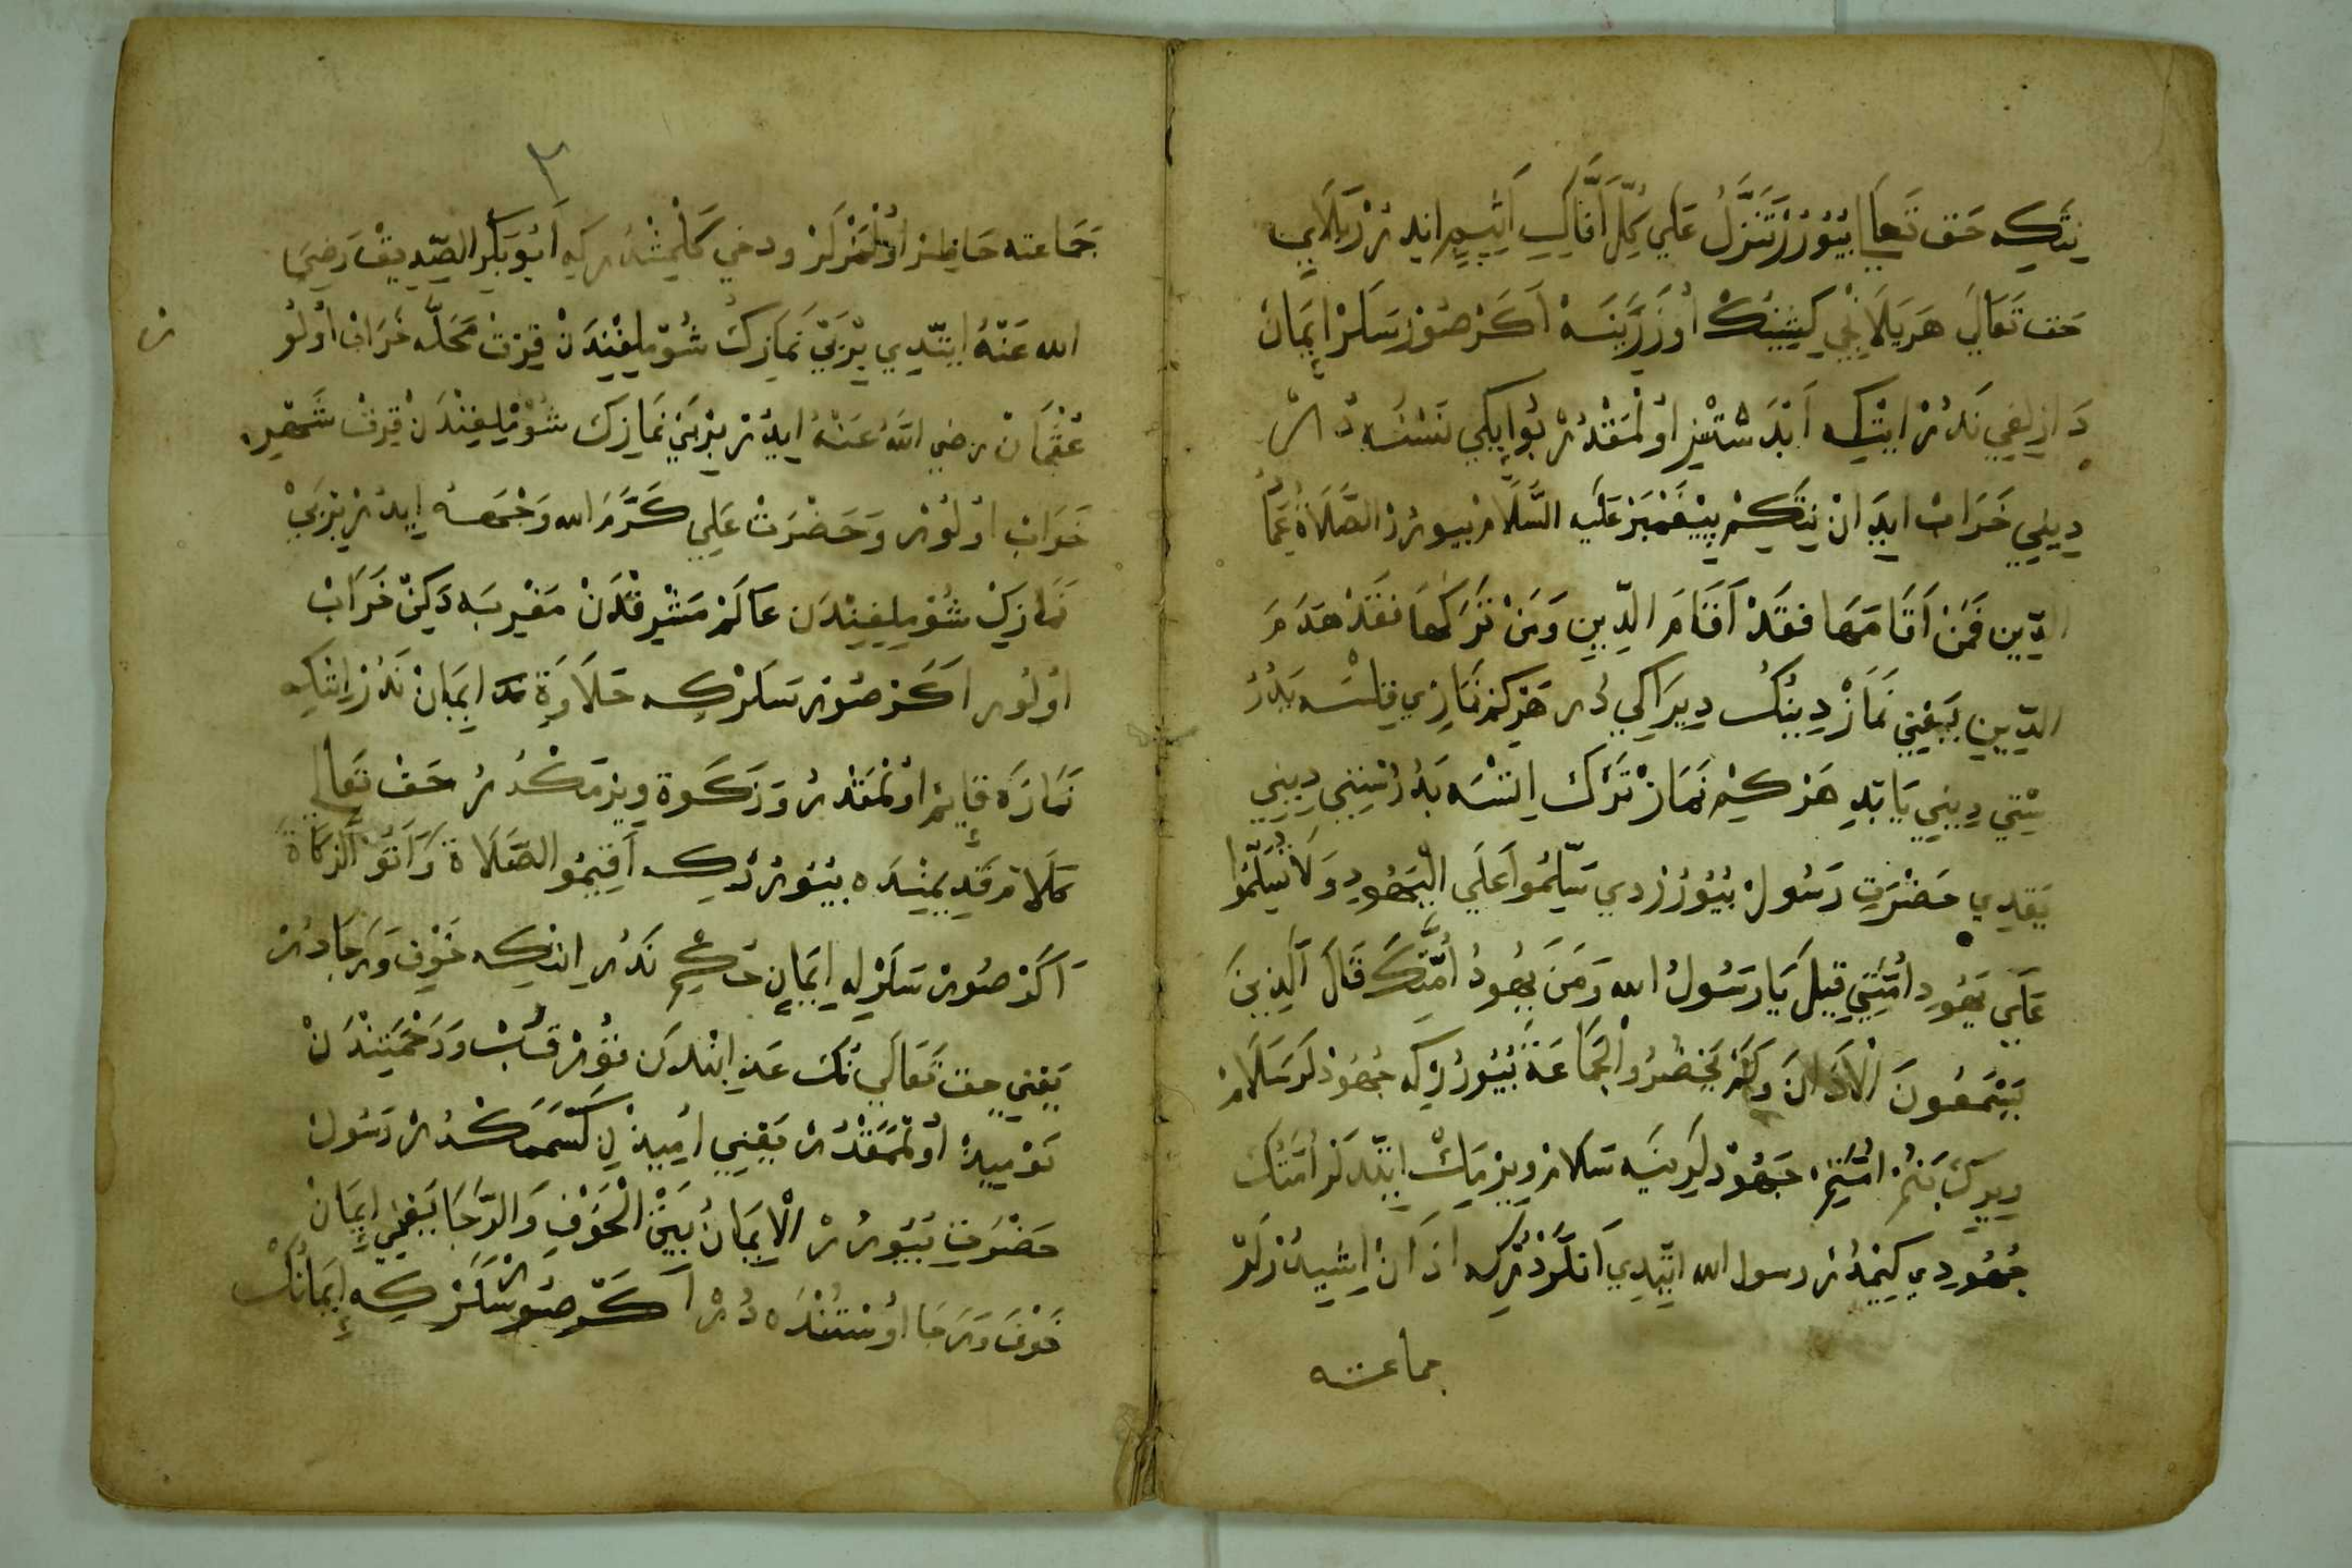 نِتَكِه حَق تَعَالَى بُيُورُرْ تَنَزَّلُ عَلَي كُلِّ اَفَّاكٍ اَثِيمٍ اِيدُرْ يَلَانِي
حَق تَعَالَي هَر يَلَانْجِي كِشِينِكْ اُوزَرِينَه اَكَرْ صُورْسَلَرْ اِيمَانْ
دَازلِغِي نَدُرْ ايتكه اَبْدَسْتْسِزْ اُولْمَقْدُرْ بُو اِيكِي نَسْنَه دُرْ
دِينِي خَرَابْ ايدَانْ نِتَكِيمْ پَيْغَمْبَرْ عَلَيْهِ السَّلَامْ بيورُرْ الصَّلَاةُ عِمَادُ
الدِّينِ فَمَنْ اَقَامَهَا فَقَدْ اَقَامَ الدِّينِ وَمَنْ تَرَكَهَا فَقَدْ هَدَمَ
الدِّينِ يَعْنِي نَمَازْ دِينُكْ دِيرَاكِي دُر هَرْ كِمْ نَمَازِي قِلْسَه بَدُرُ
سْتِي دِينِي يَابَدِ هَرْ كِيمْ نَمَازْ تَرْكْ اِتْسَه بَدُرُسْتِي دِينِي
يَقدِي حَضْرَتِ رَسُولْ بُيُورُرْدي سَلِّمُوا عَلَي الْيَهُودِ وَلَا تُسَلِّمُوا
عَلَي يَهُودِ اُمَّتِي قِيلَ يَا رَسُولُ الله وَمَنَ يَهُودُ اُمَّتِكَ قَالَ اَلَّذِينَ
يَسْمَعُونَ الْاَذَانَ وَلَمْ يَحْضُرُوا الْجَمَاعَةَ بُيُورُرْكِه جُهُودْلَرَ سَلَامْ
ويرك بَنُمْ اُمَّتِمْ جهُودْلَرِينَه سَلَامْ ويرمَاكْ ايتّدلَرْ اُمَّتُكْ
جُهُودي كِيمْدُرْ رسول الله ايتّدي اَنلَرْدُرْكِه اذَانْ اِشِيدُرْلَرْ
جماعته
٢
جَمَاعته حَاضِرْ اُولْمَزْلَرْ ودخي كَلْمِشْدُر كِه اَبُو بَكْرِ الصِّدِيقْ رَضِيَ
الله عَنْهُ ايتّدي بِرْ بِي نَمَازكْ شُوملِغِينْدَنْ قِرْقْ مَحَلّه خَرَابْ اُولُو
ر
عُثْمَانْ رضي اللهُ عَنْهُ ايدُرْ بِرْ بِي نَمَازكْ شُومْلِغِينْدَنْ قِرقْ شَهِر
خَرَابْ اُولُورْ وَحَضْرَتْ عَلِي كَرَّمَ الله وَجْهَهُ ايدُرْ بِرْ بِي
نَمَازكْ شُومْلِغِينْدَن عَالَمْ مَشْرِقْدَنْ مَغْرِبَه دَكِنْ خَرَابْ
اُولُور اَكَرْ صُورْسَلَرْكِه حَلَاوَةِ ايمَانْ نَدُرْ ايتكه
نَمَازَه قَايِمْ اُولْمَقْدُرْ وَزَكَوة ويرمَكْدُرْ حَقْ تَعَالَى
كَلَامِ قَدِيمِنْدَه بُيُورُرْكِه اَقِيمُو الصَّلَاةَ وَآتُو الزَّكَاةَ
اَكَرْ صُورْسَلَرْ اِيمَانِ حُكْمِ نَدُر ايتكه خَوْف وَرَجَادُرْ
يَعْنِي حق تَعَالَي نُكْ عَذابْنْدَن قُورْقُبْ وَرَحْمَتِنْدَنْ
نَوْمِيدْ اُولْمَمَقْدُرْ يَعْنِي اُمِيدْ كَسْمَمَكْدُرْ رَسُولْ
حَضْرَتِ بُيُورُرْ الْاِيمَانُ بَيْنَ الْخَوْفِ وَالرَّجَا يَعْنِي اِيمَانْ
خَوْفَ وَرَجَا اُوسْتُنْدَه دُرْ اَكَرْ صُورْسَلَرْكِه اِيمَانُكْ